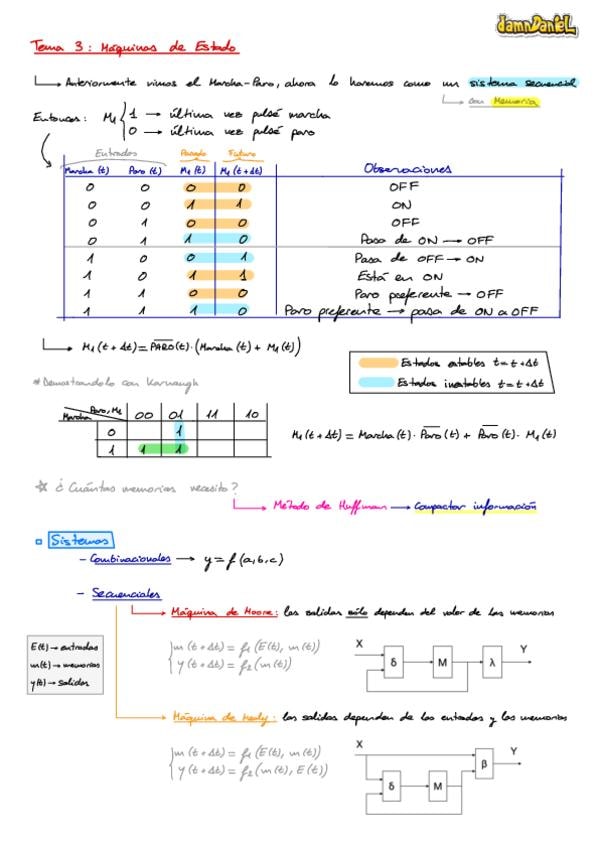 damnDanieL
Tema 3: Máquinas de Estado
Anteriormente vimos el Marcha-Paro, ahora lo haremos como un sistema secuencial
con Memoria
Entonces: M₁ { 1 → última vez pulsé marcha
0 → última vez pulsé paro
Entradas Pasado Futuro
Marcha (t) Paro (t) M₁ (t) M₁ (t+Δt) Observaciones
0 0 0 0 OFF
0 0 1 1 ON
0 1 0 0 OFF
0 1 1 0 Pasa de ON → OFF
1 0 0 1 Pasa de OFF → ON
1 0 1 1 Está en ON
1 1 0 0 Paro preferente → OFF
1 1 1 0 Paro preferente → pasa de ON a OFF
M₁ (t+Δt) = P̅A̅R̅O̅(t)·(Marcha (t) + M₁ (t))
Estados estables t=t+Δt
Estados inestables t=t+Δt
*Demostrándolo con Karnaugh
Marcha \ Paro, M₁ 00 01 11 10
0 1
1 1 1
M₁ (t+Δt) = Marcha (t) · P̅a̅r̅o̅ (t) + P̅a̅r̅o̅ (t) · M₁ (t)
☆ ¿Cuántas memorias necesito?
Método de Huffman → Compactar información
Sistemas
- Combinacionales → y = f (a, b, c)
- Secuenciales
Máquina de Moore: las salidas sólo dependen del valor de las memorias
E(t) → entradas
m(t) → memorias
y(t) → salidas
m (t+Δt) = f₁ (E(t), m(t))
y (t+Δt) = f₂ (m(t))
X δ M λ Y
Máquina de Mealy: las salidas dependen de las entradas y las memorias
m (t+Δt) = f₁ (E(t), m(t))
y (t+Δt) = f₂ (m(t), E(t))
X δ M β Y